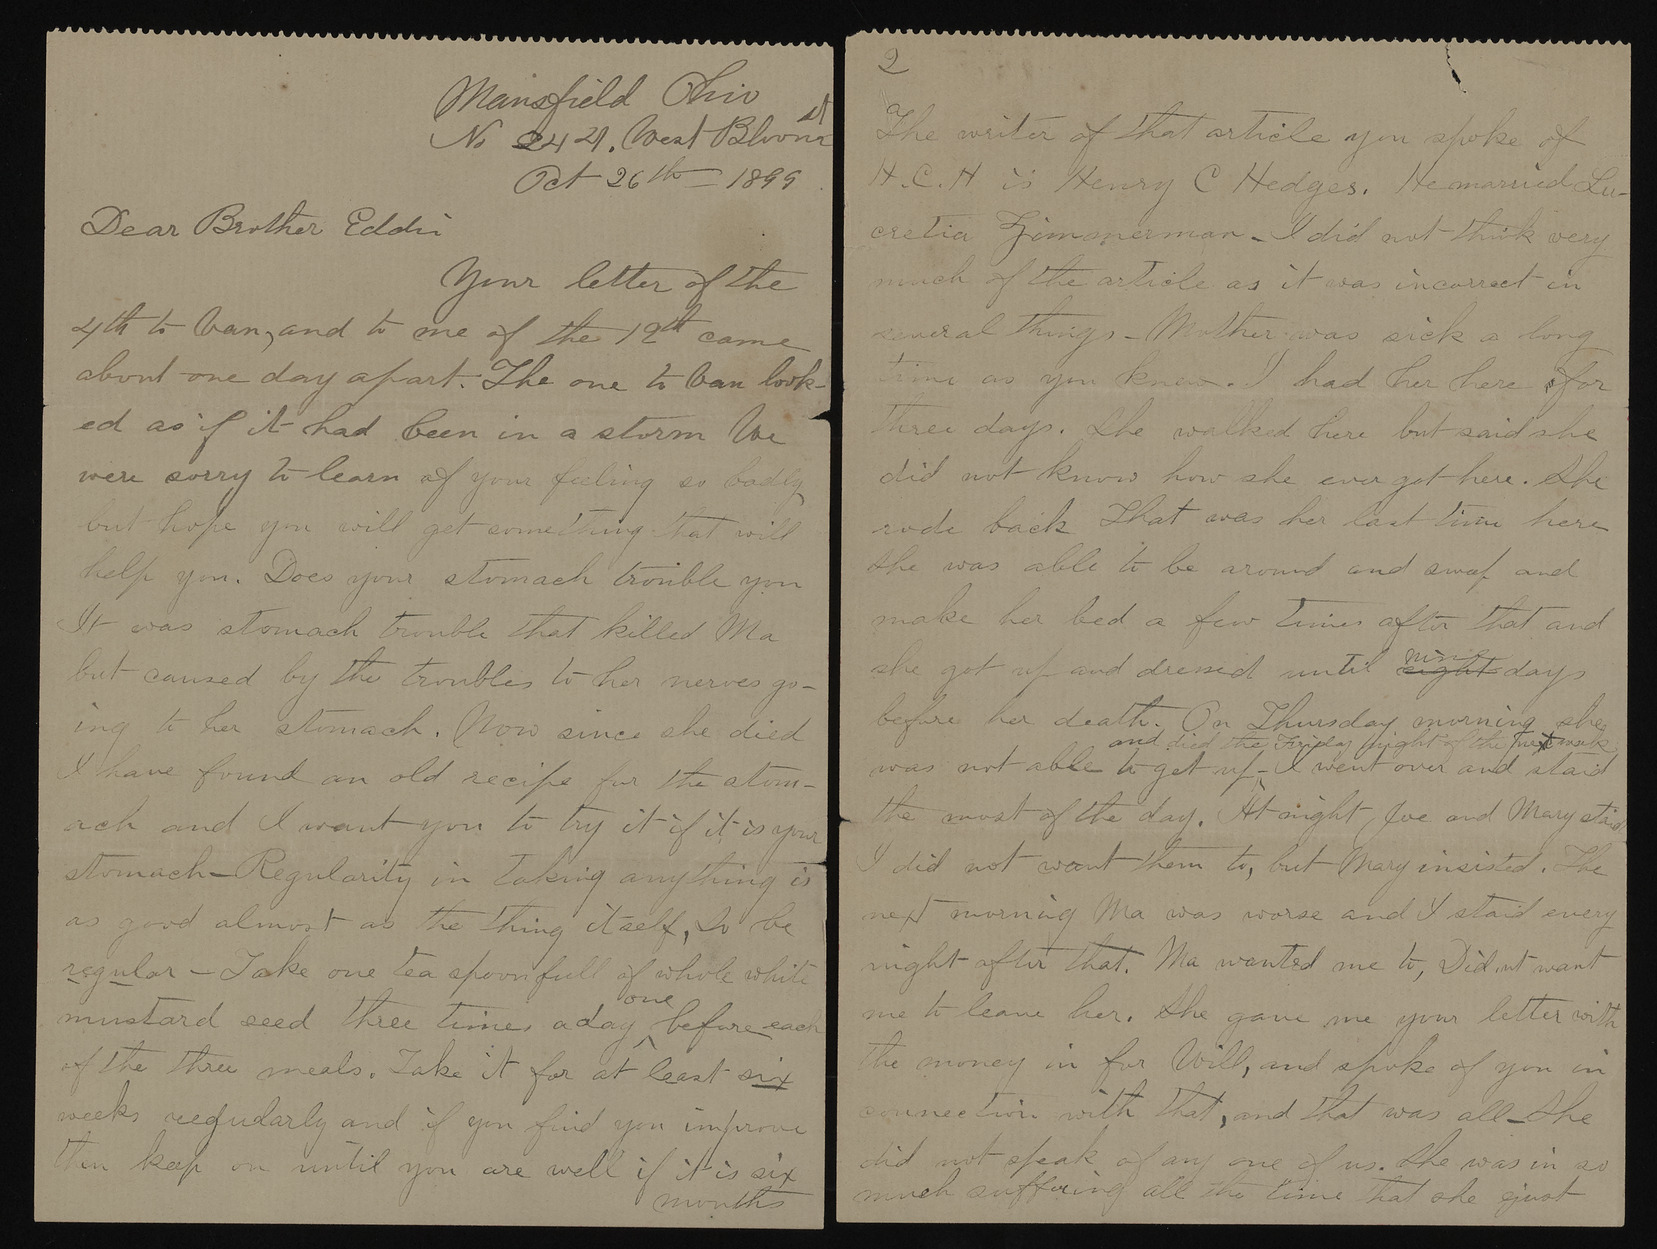 Mansfield Ohio
No 242, West Bloom st
Oct 26th - 1899
Dear Brother Eddie
Your letter of the
4th to Van, and to me of the 12th came
about one day apart. The one to Van look-
ed as if it had been in a storm We
were sorry to learn of your feeling so badly
but hope you will get something that will
help you. Does your stomach trouble you
It was stomach trouble that killed Ma
but caused by the troubles to her nerves go-
ing to her stomach. Now since she died
I have found an old recipe for the stom-
ach and I want you to try it if it is your
stomach - Regularity in taking anything is
as good almost as the thing itself, So be
regular - Take one tea spoonfull of whole white
mustard seed three times a day one before each
of the three meals. Take it for at least six
weeks regularly and if you find you improve
then keep on until you are well if it is six
months
2
The writer of that article you spoke of
H.C.H is Henry C Hedges. He married Lu-
cretia Zimmerman - I did not think very
much of the article as it was incorrect in
several things - Mother was sick a long
time as you know. I had her here for
three days. She walked here but said she
did not know how she ever got here. She
rode back That was her last time here
She was able to be around and swep and
make her bed a few times after that and
she got up and dressed until eight nine days
before her death. On Thursday morning she
and died the Friday night of the next week
was not able to get up - I went over and staid
the most of the day. At night Joe and Mary staid
I did not want them to, but Mary insisted. The
next morning Ma was worse and I staid every
night after that. Ma wanted me to, Did nt want
me to leave her. She gave me your letter with
the money in for Will, and spoke of you in
connection with that, and that was all - She
did not speak of any one of us. She was in so
much suffering all the time that she just